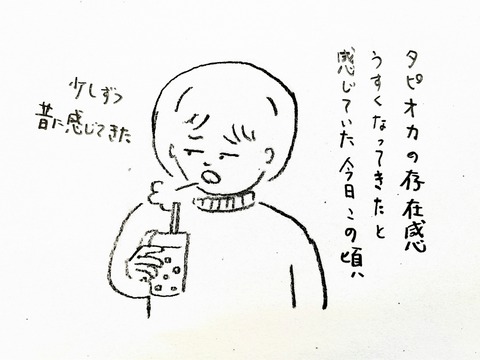 タピオカの存在感
うすくなってきたと
感じていた今日この頃、
少しずつ
昔に感じてきた